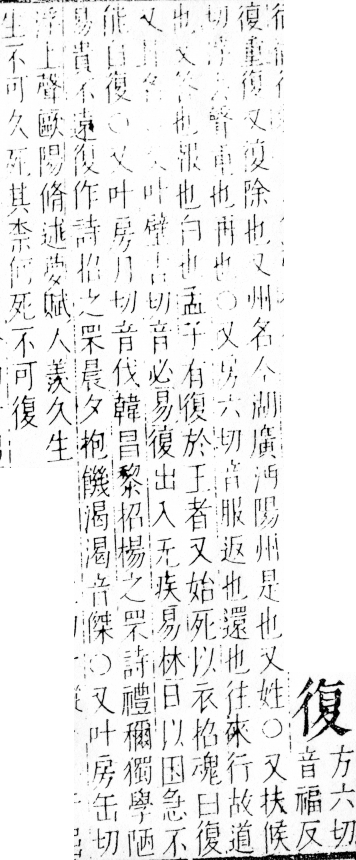 復
方六切
音福反
復重復又復除也又州名今湖廣沔陽州是也又姓○又扶候
切浮去聲重也再也○又房六切音服返也還也往來行故道
也又答也報也白也孟子有復於王者又始死以衣招魂曰復
又卦名○又叶璧吉切音必易復出入无疾易林曰以困急不
能自復○又叶房月切音伐韓昌黎招楊之罘詩禮禰獨學陋
易貴不遠復作詩招之罘晨夕抱饑渴渴音傑○又叶房缶切
浮上聲歐陽脩述夢賦人羨久生
生不可久死其柰何死不可復